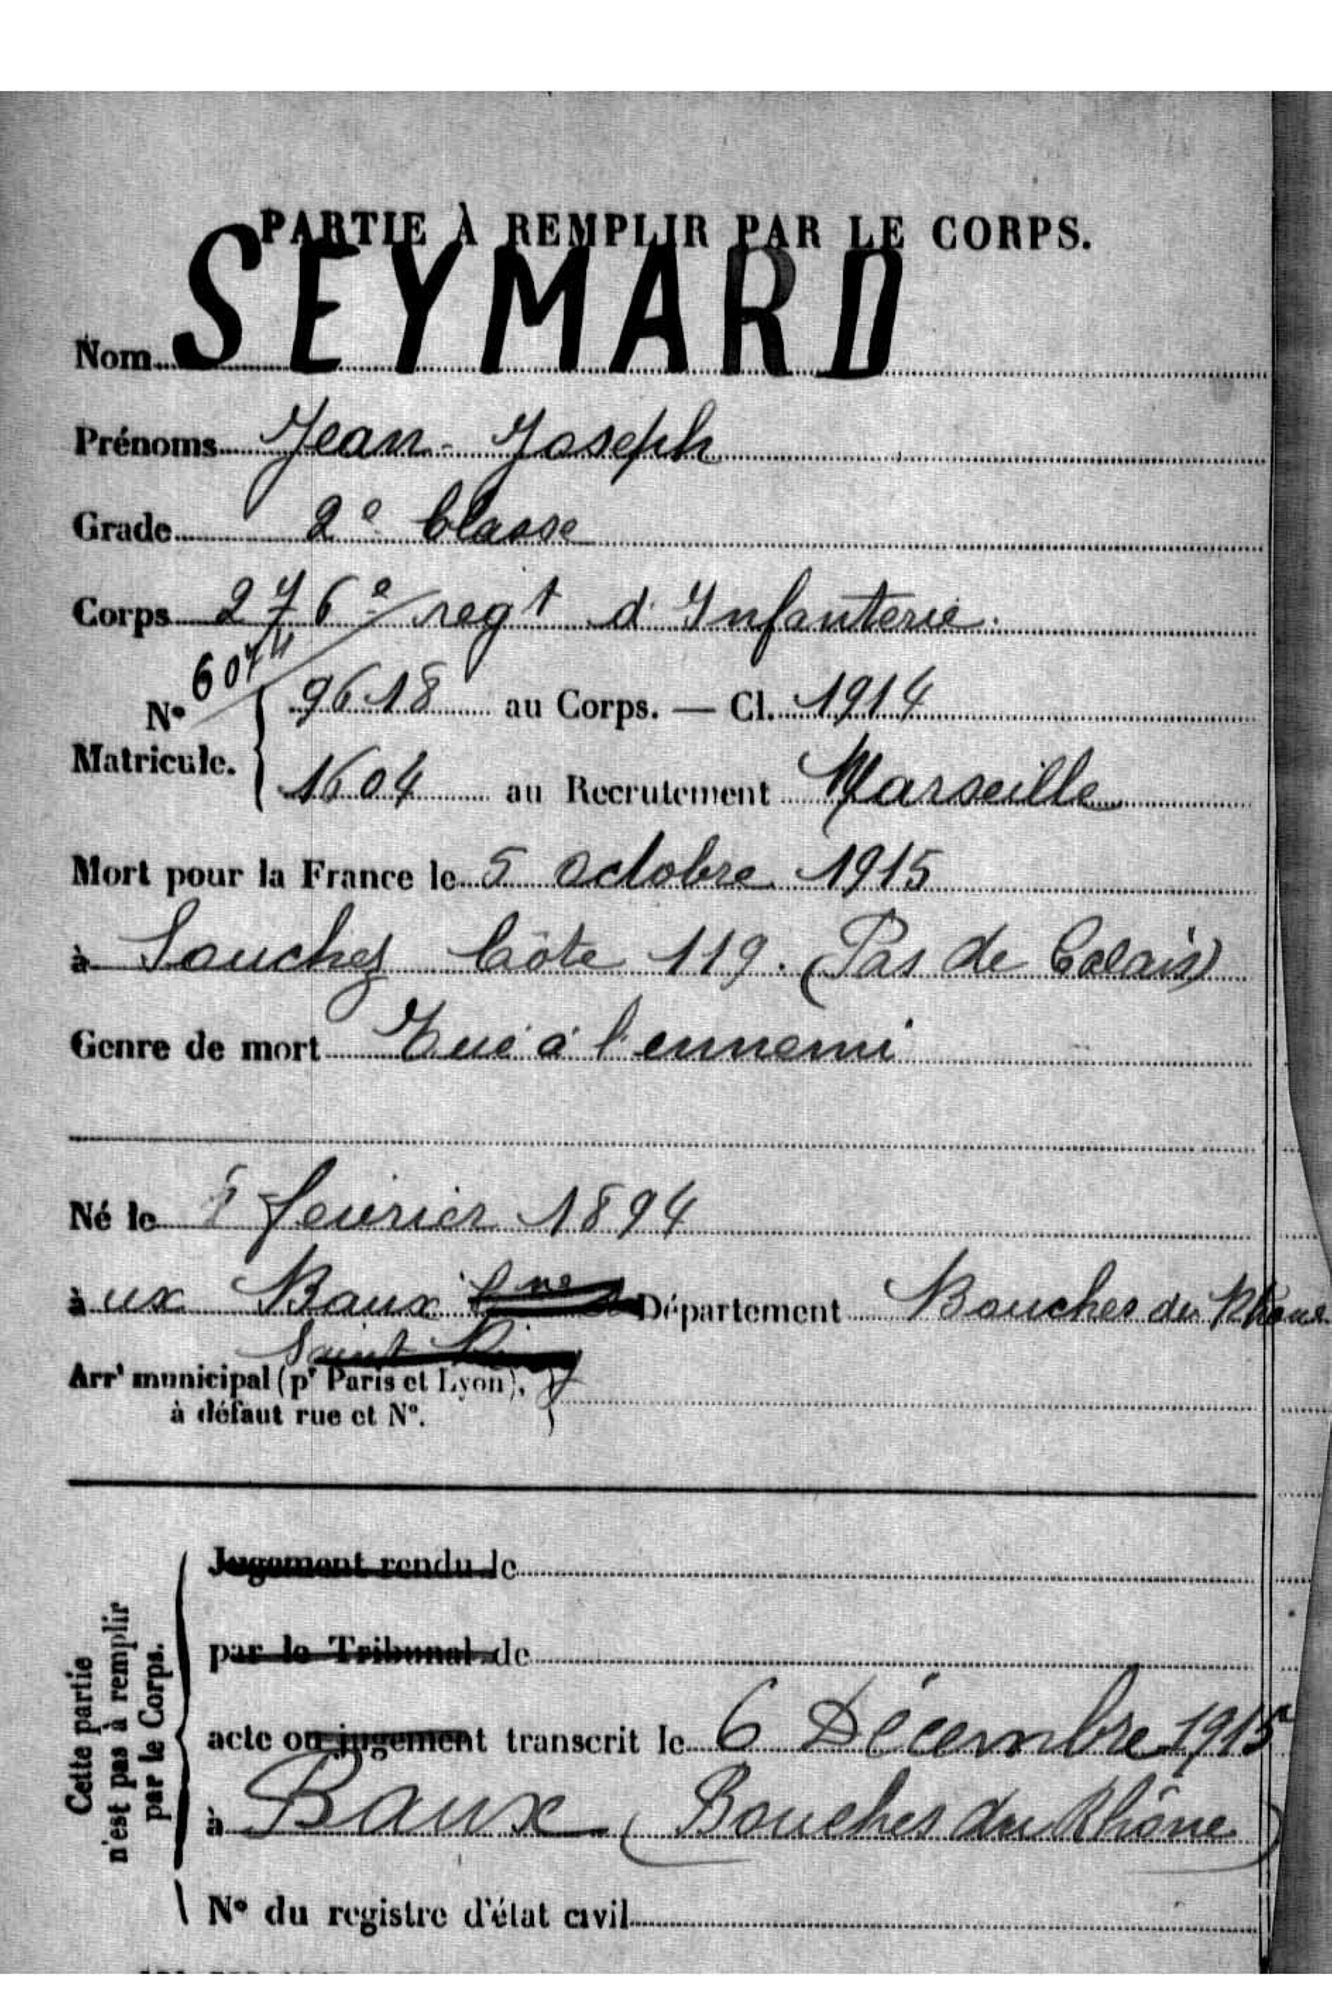 PARTIE À REMPLIR PAR LE CORPS.
Nom SEYMARD
Prénoms Jean-Joseph
Grade 2e Classe
Corps 276e regt d'Infanterie.
N° 9618 au Corps. — Cl. 1914
Matricule. 1604 au Recrutement Marseille
Mort pour la France le 5 octobre 1915
à Souchez Côte 119. (Pas de Calais)
Genre de mort Tué à l'ennemi
Né le février 1894
à ux Baux Département Bouches du Rhône
Saint
Arrt municipal (pr Paris et Lyon),
à défaut rue et N°.
Cette partie
n'est pas à remplir
par le Corps.
Jugement rendu le
par le Tribunal de
acte ou jugement transcrit le 6 Décembre 1915
à Baux (Bouches du Rhône)
N° du registre d'état civil